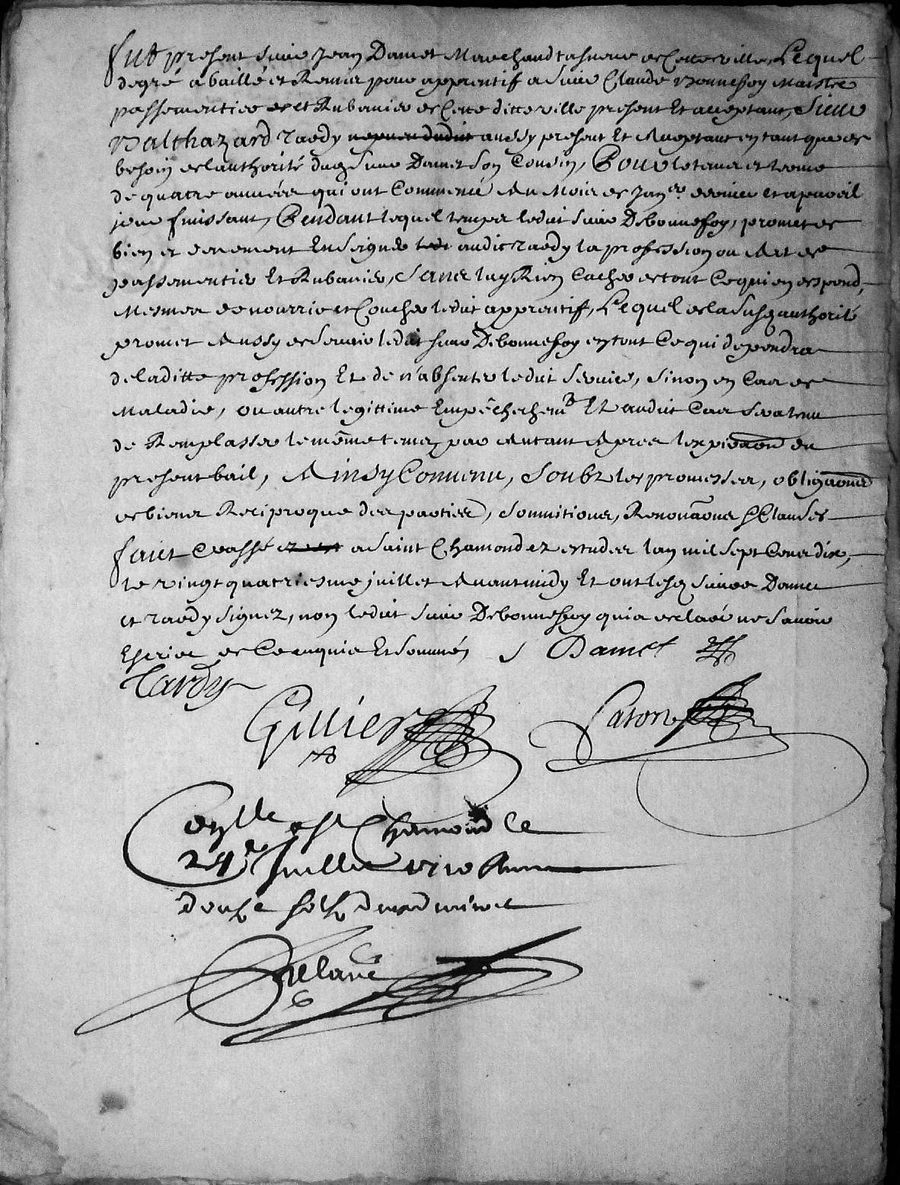 fut présent sieur Jean Damet Marchand tasneur de cette ville, Lequel
de gré a baillé et Remis pour apprentif a sieur Claude Bonnefoy Maistre
passementier et Rubanier de Cette ditte ville présent Et acceptant, sieur
Balthazard Tardy aussy présent Et Acceptant en tant que de
besoin de l'authorité dudit sieur Damet son Cousin, Pour le tems et terme
de quatre années qui ont Commencé Au Mois de Janer dernier et a pareil
jour finissant, Pendant lequel temps ledit sieur Debonnefoy, promet de
bien et deuement Enseigner audit Tardy la profession ou Art de
passementier Et Rubanier, sans luy Rien Cacher de tout Ce qui en depend,
Mesmes de nourrir et Coucher ledit apprentif, Lequel de la susd authorité
promet Aussy de servir ledit sieur Debonnefoy en tout Ce qui dependra
de la ditte profession Et de n'absenter ledit service, sinon en Cas de
Maladie, ou autre legitime Empêchement Et audit Cas sera tenu
de Remplasser le même tems, par Autant Apres l'expiraon du
present bail, Ainsy Convenu, soubz les promesses, obligaons
de biens Reciproque des parties, soumitions, Renonaons & Clauses
fait et passé a Saint Chamond ez estudes lan mil sept Cens dix,
le vingt quatriesme juillet Avant midy Et ont lesd sieurs Damet
et Tardy signez, non ledit sieur Debonnefoy qui a declaré ne savoir
Escrire de Ce enquis Et sommés J Damet
Tardy
Gillier
Paton
Conlle a St Chamond le
24e Juillet 1710 Reçu
douze sols